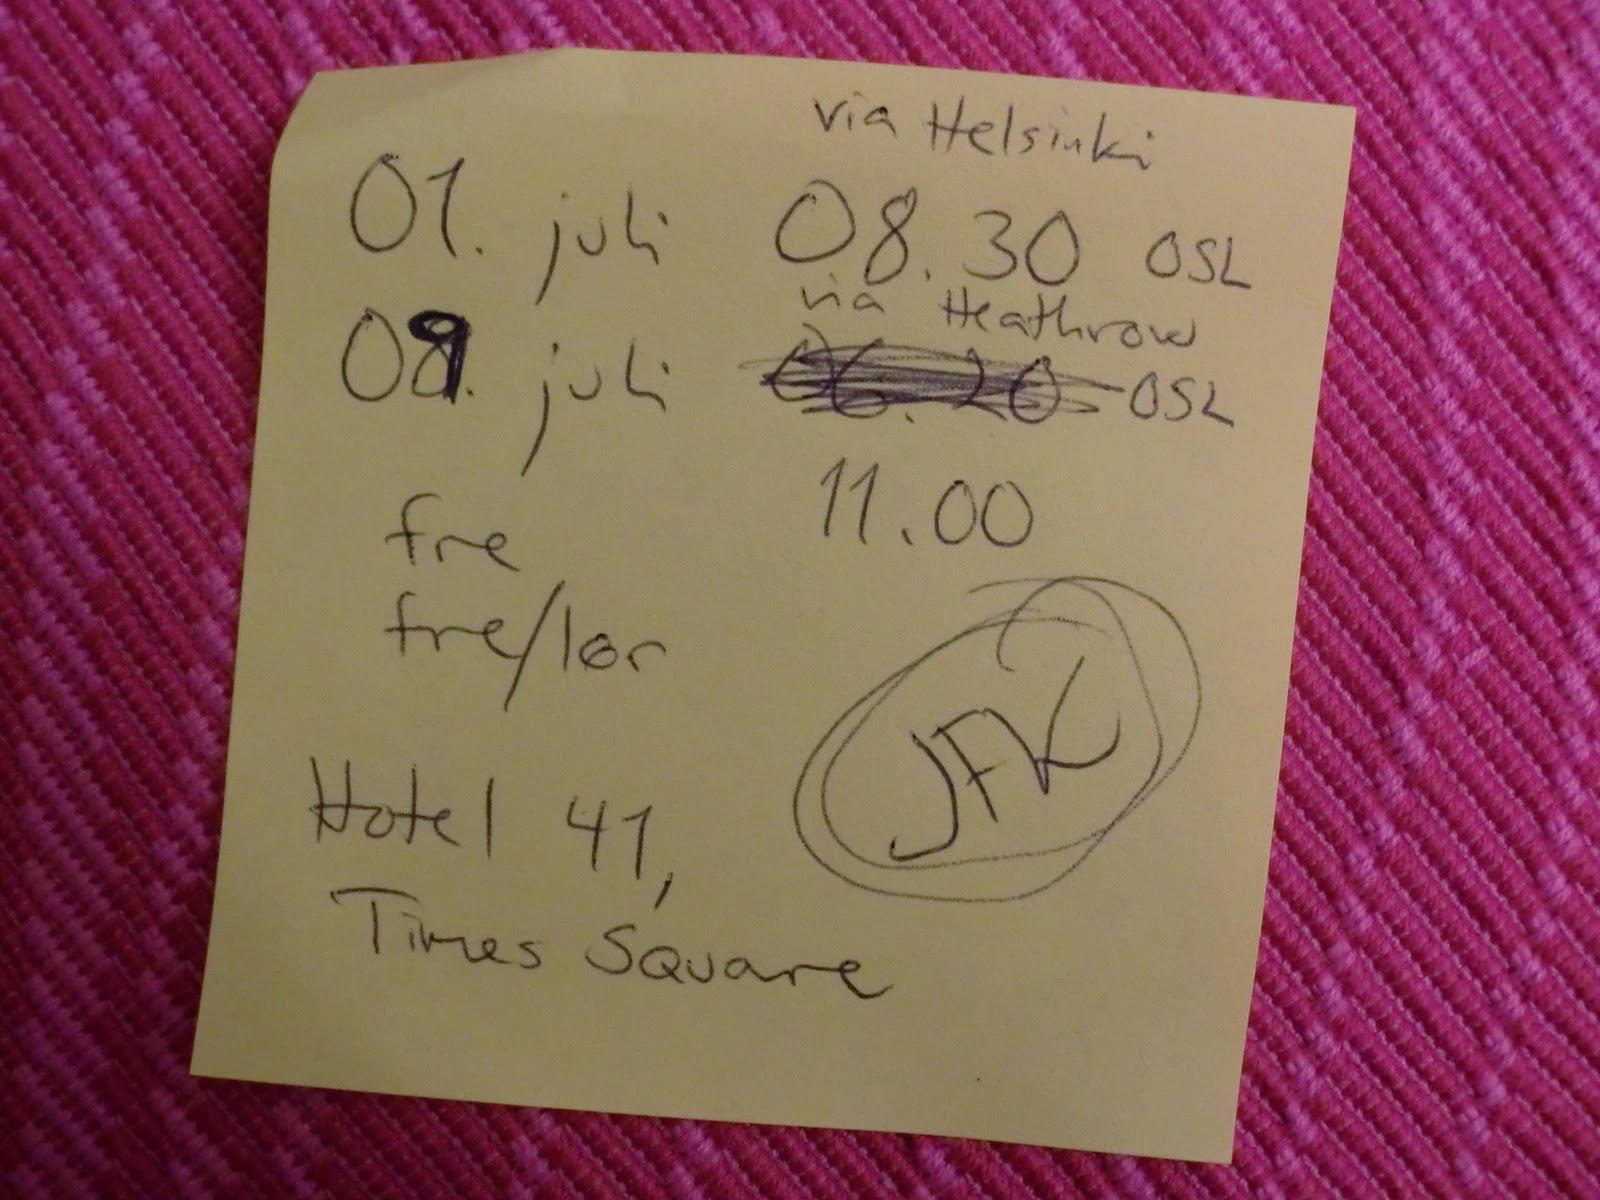 via Helsinki
01. juli 08.30 OSL
via Heathrow
09. juli 06.20 OSL
11.00
fre
fre/lør
JFK
Hotel 41,
Times Square